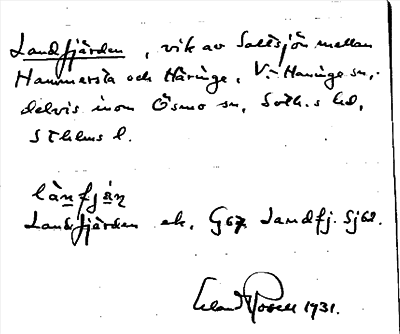 Landfjärden, vik av Saltsjön mellan
Hammersta och Häringe, V.-Haninge sn,
delvis inom Ösmo sn, Soth.s hd,
Sthlms l.
lànfjän
Landfjärden ek. G67. Landfj. Sj62.
1931.